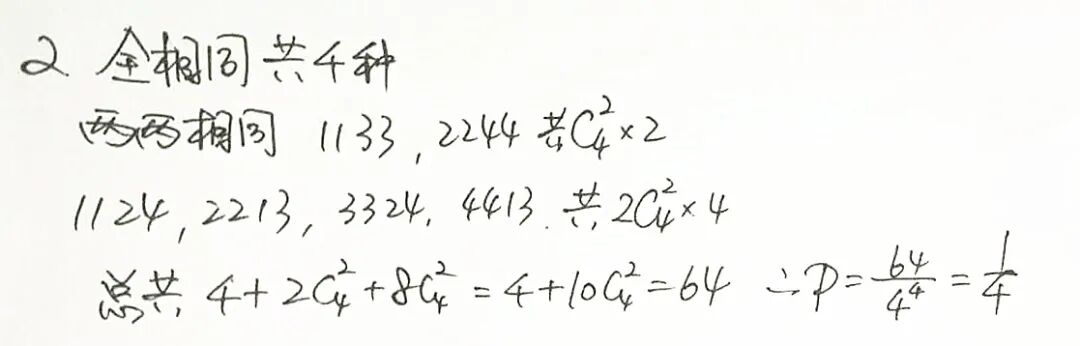 2 全相同共4种
两两相同 1133, 2244 共C₄²×2
1124, 2213, 3324, 4413. 共2C₄²×4
总共 4+2C₄²+8C₄²=4+10C₄²=64 ∴P=64/4⁴=1/4